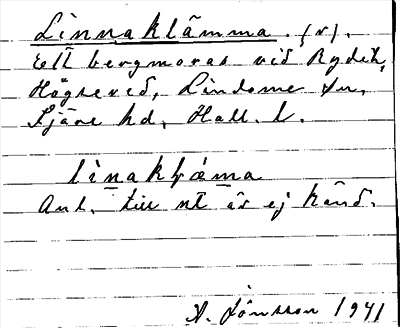 Linnaklämma. (v).
Ett bergmoras vid Rydet,
Högsered, Lindome sn,
Fjäre hd, Hall. l.
linakḷáma
Anl. till nt är ej känd.
A. Jönsson 1941